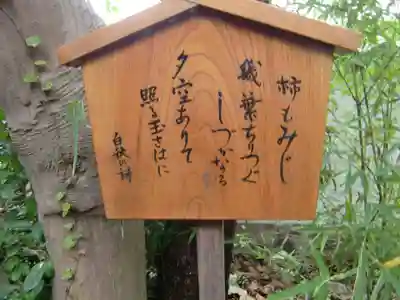 柿もみぢ
幾葉ちりつぐ
しづかなる
夕空ありて
照る玉さはに
白秋詩